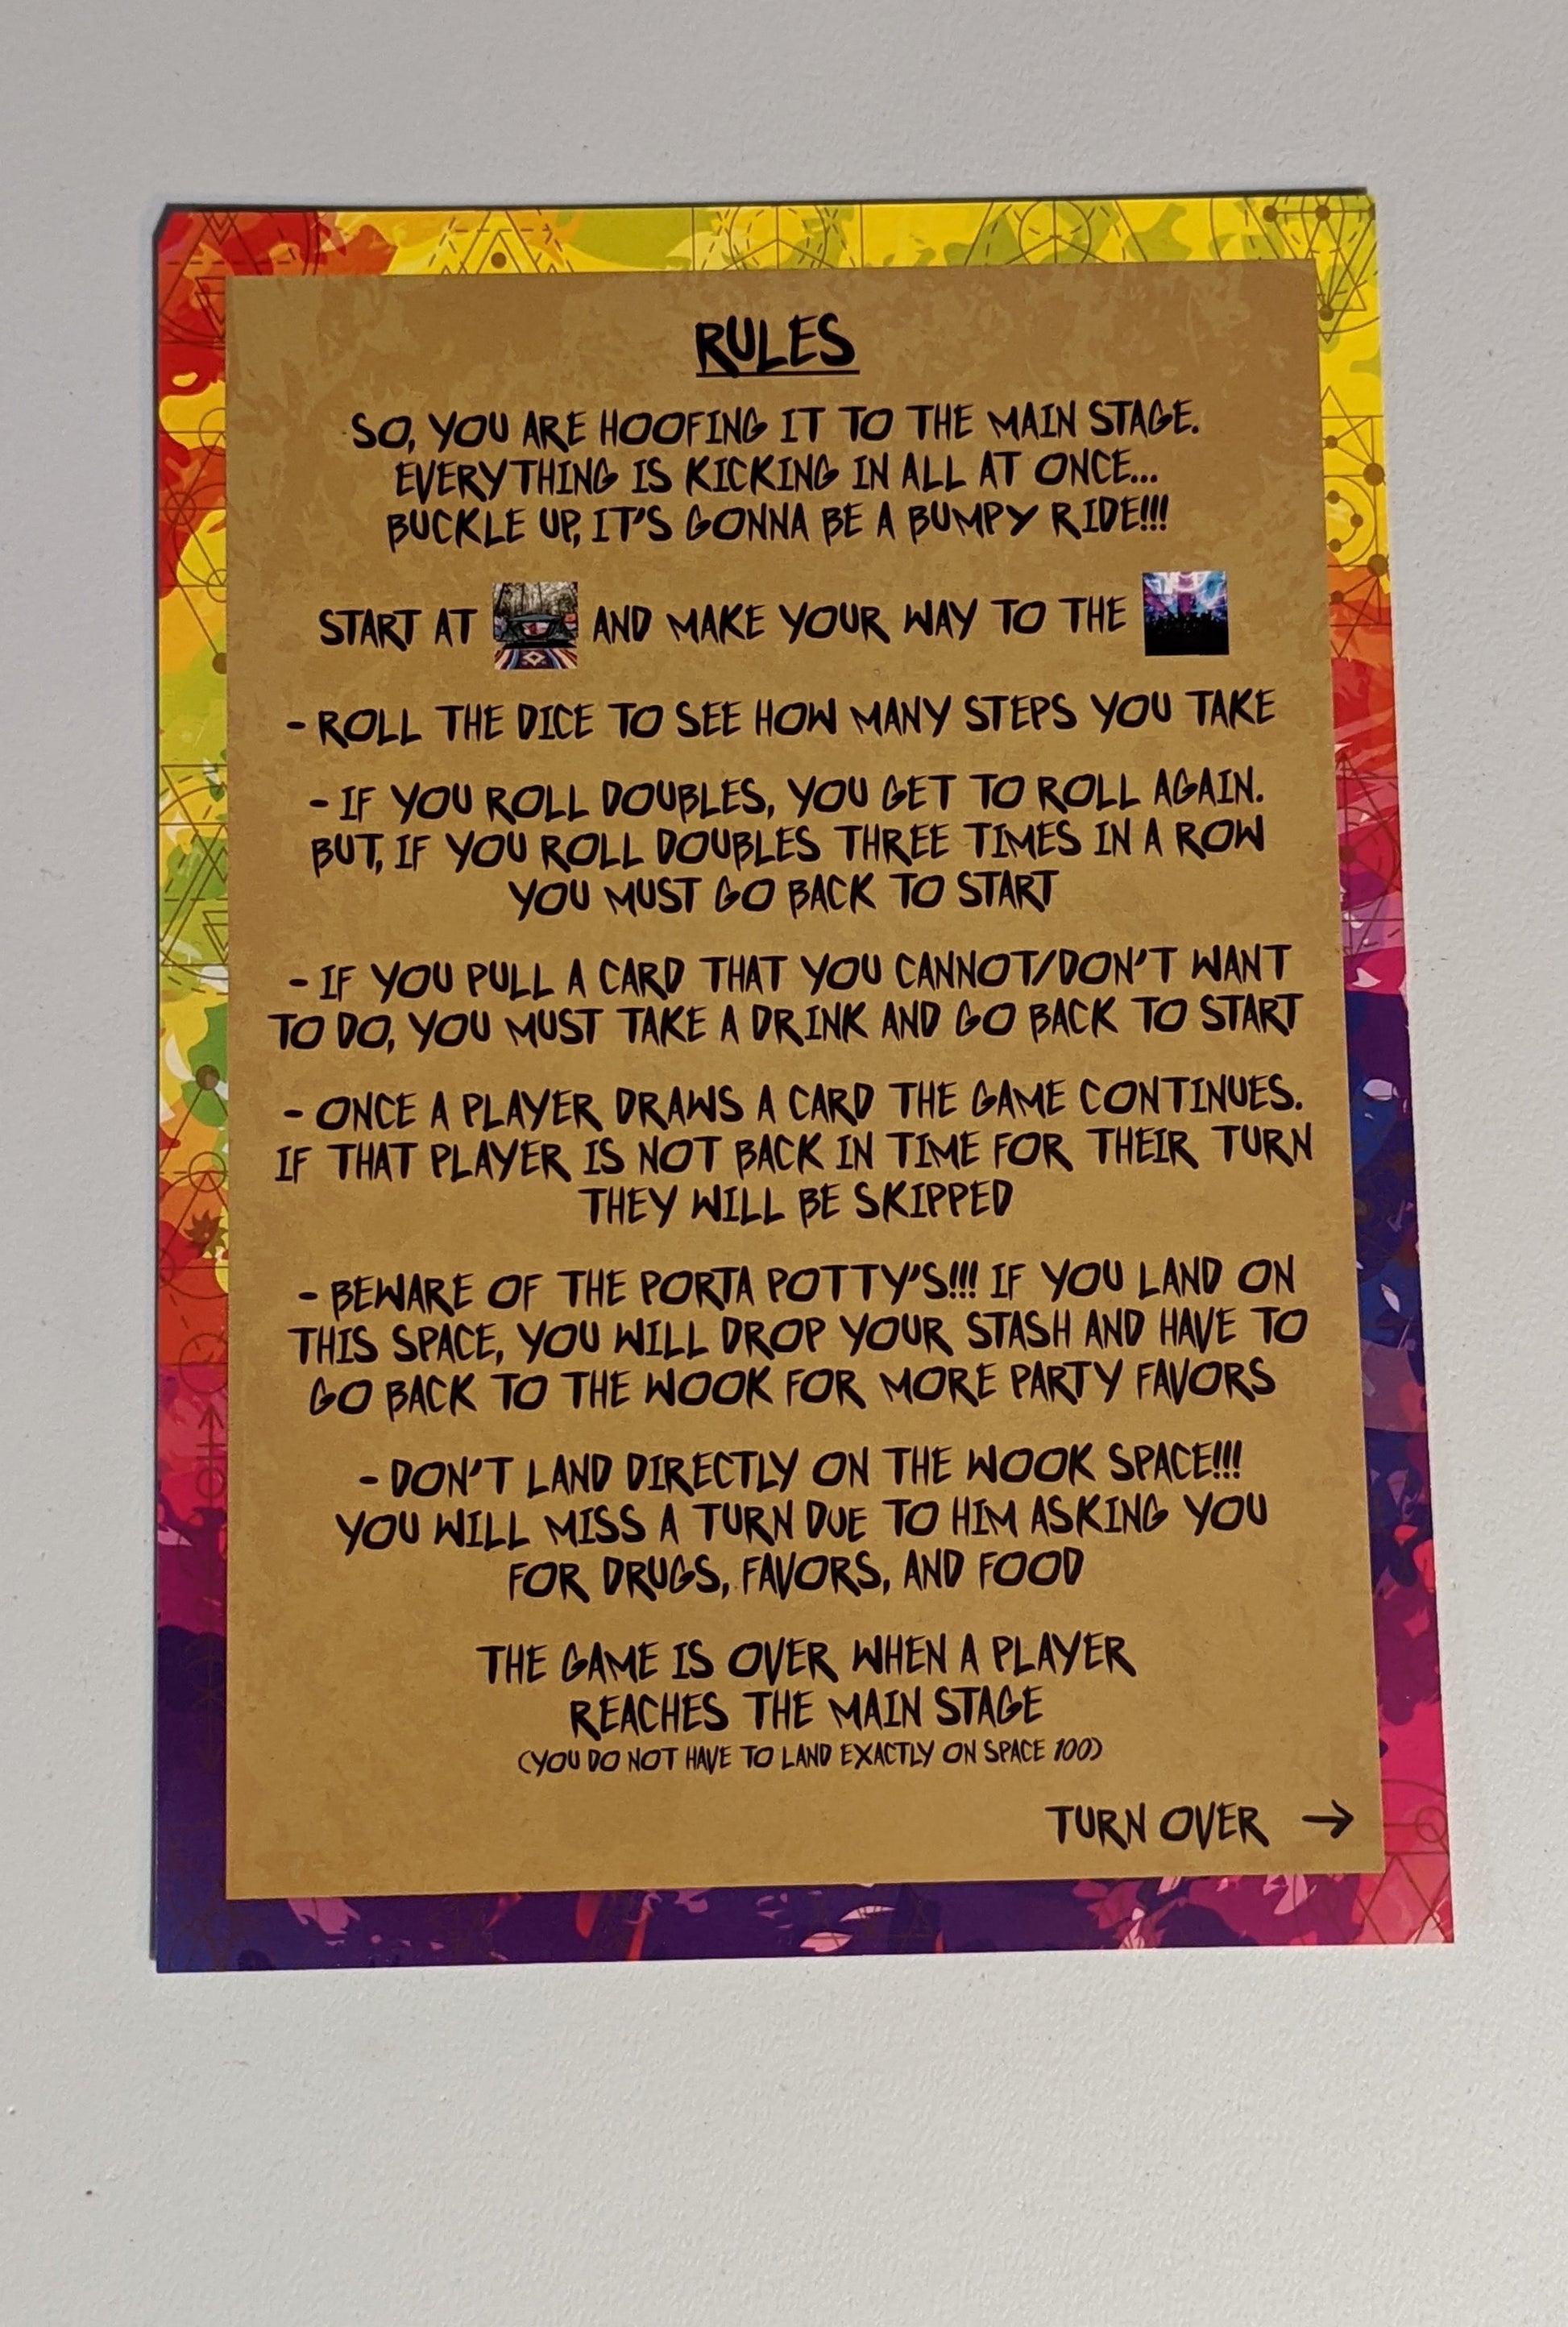 RULES
SO, YOU ARE HOOFING IT TO THE MAIN STAGE.
EVERYTHING IS KICKING IN ALL AT ONCE...
BUCKLE UP, IT'S GONNA BE A BUMPY RIDE!!!
START AT AND MAKE YOUR WAY TO THE
- ROLL THE DICE TO SEE HOW MANY STEPS YOU TAKE
- IF YOU ROLL DOUBLES, YOU GET TO ROLL AGAIN.
BUT, IF YOU ROLL DOUBLES THREE TIMES IN A ROW
YOU MUST GO BACK TO START
- IF YOU PULL A CARD THAT YOU CANNOT/DON'T WANT
TO DO, YOU MUST TAKE A DRINK AND GO BACK TO START
- ONCE A PLAYER DRAWS A CARD THE GAME CONTINUES.
IF THAT PLAYER IS NOT BACK IN TIME FOR THEIR TURN
THEY WILL BE SKIPPED
- BEWARE OF THE PORTA POTTY'S!!! IF YOU LAND ON
THIS SPACE, YOU WILL DROP YOUR STASH AND HAVE TO
GO BACK TO THE WOOK FOR MORE PARTY FAVORS
- DON'T LAND DIRECTLY ON THE WOOK SPACE!!!
YOU WILL MISS A TURN DUE TO HIM ASKING YOU
FOR DRUGS, FAVORS, AND FOOD
THE GAME IS OVER WHEN A PLAYER
REACHES THE MAIN STAGE
(YOU DO NOT HAVE TO LAND EXACTLY ON SPACE 100)
TURN OVER →